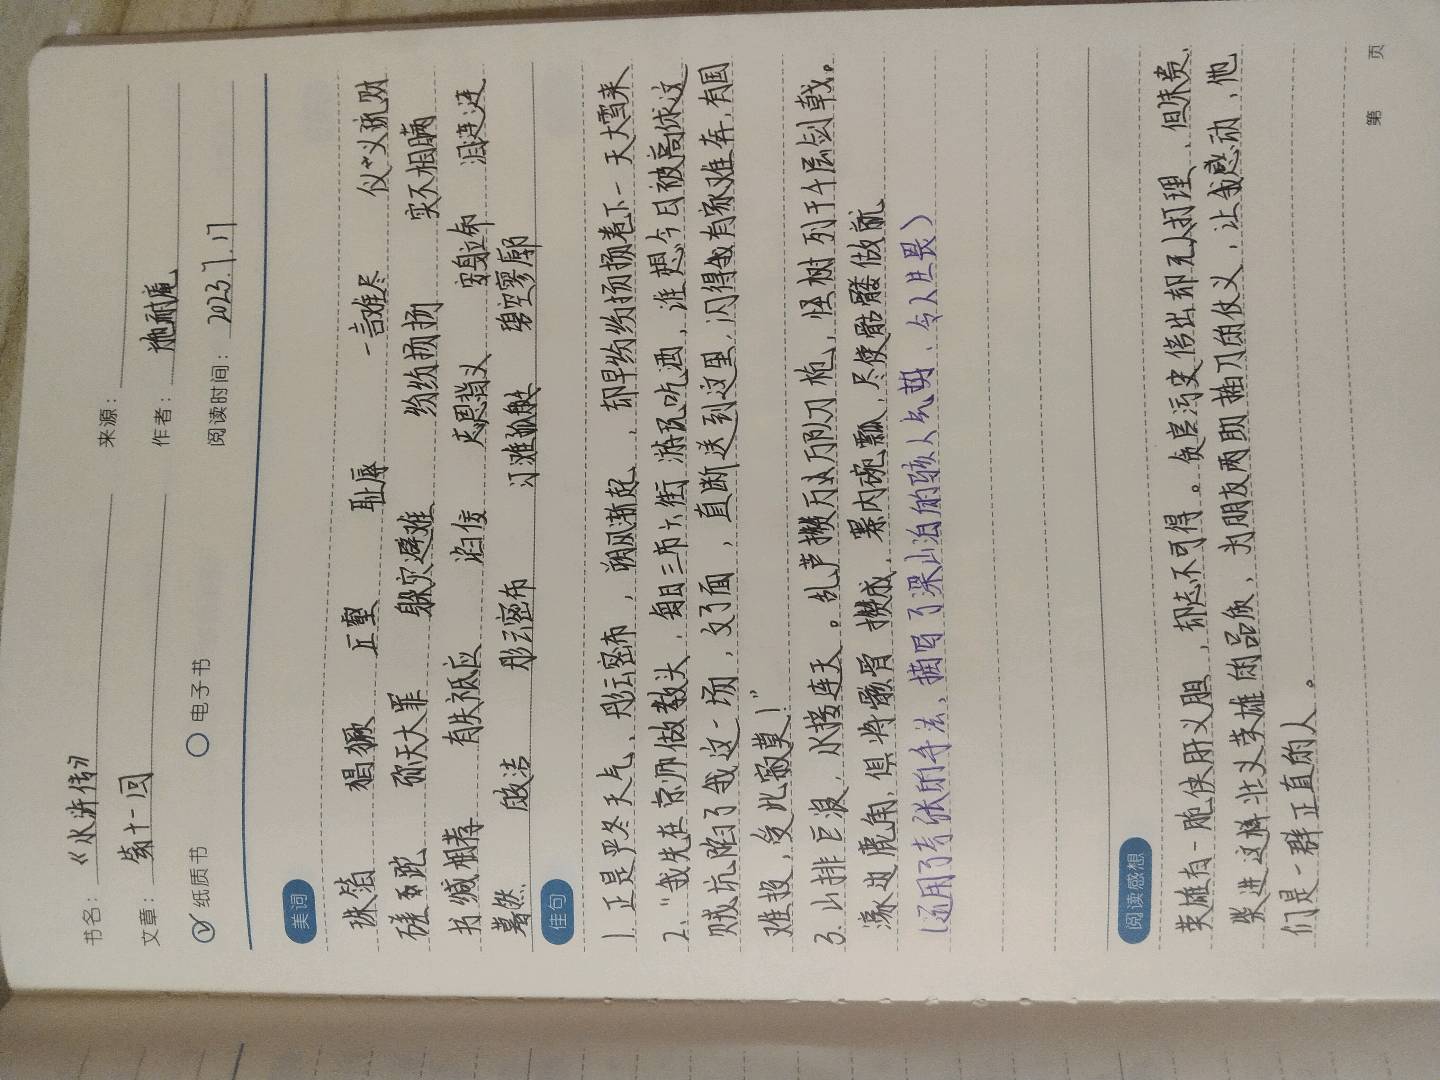 书名：《水浒传》
来源：
文章：第十一回
作者：施耐庵
纸质书 电子书
阅读时间：2023.7.17
美词
猖獗 丘壑 耻辱 一言难尽 仗义疏财
弥天大罪 躲灾避难 纷纷扬扬 实不相瞒
书缄相荐 有失祗应 安身立命 泪涟涟
蓦然 皎洁 彤云密布 汀滩 碧空寥廓
佳句
1. 正是严冬天气、彤云密布，朔风渐起、却早纷纷扬扬卷下一天大雪来
2、“我先在京师做教头、每日三市六街游玩吃酒，谁想今日被高俅这
贼坑陷了我这一场，文了面，直断送到这里、闪得我有家难奔，有国
难投，受此寂寞！”
3、山排巨浪，水接连天。乱芦攒万万队刀枪，怪树列千千层剑戟。
濠边鹿角，俱将骸骨攒成，寨内碗瓢，尽使骷髅做就
（运用了夸张的手法，描写了梁山泊的骇人气势、令人生畏）
阅读感想
英雄有一腔侠肝义胆，却志不可得。贪官污吏倍出却无人打理、但
柴进这样壮义英雄的品质，为朋友两肋插刀的仗义，让我感动，他
们是一群正直的人。
第 页